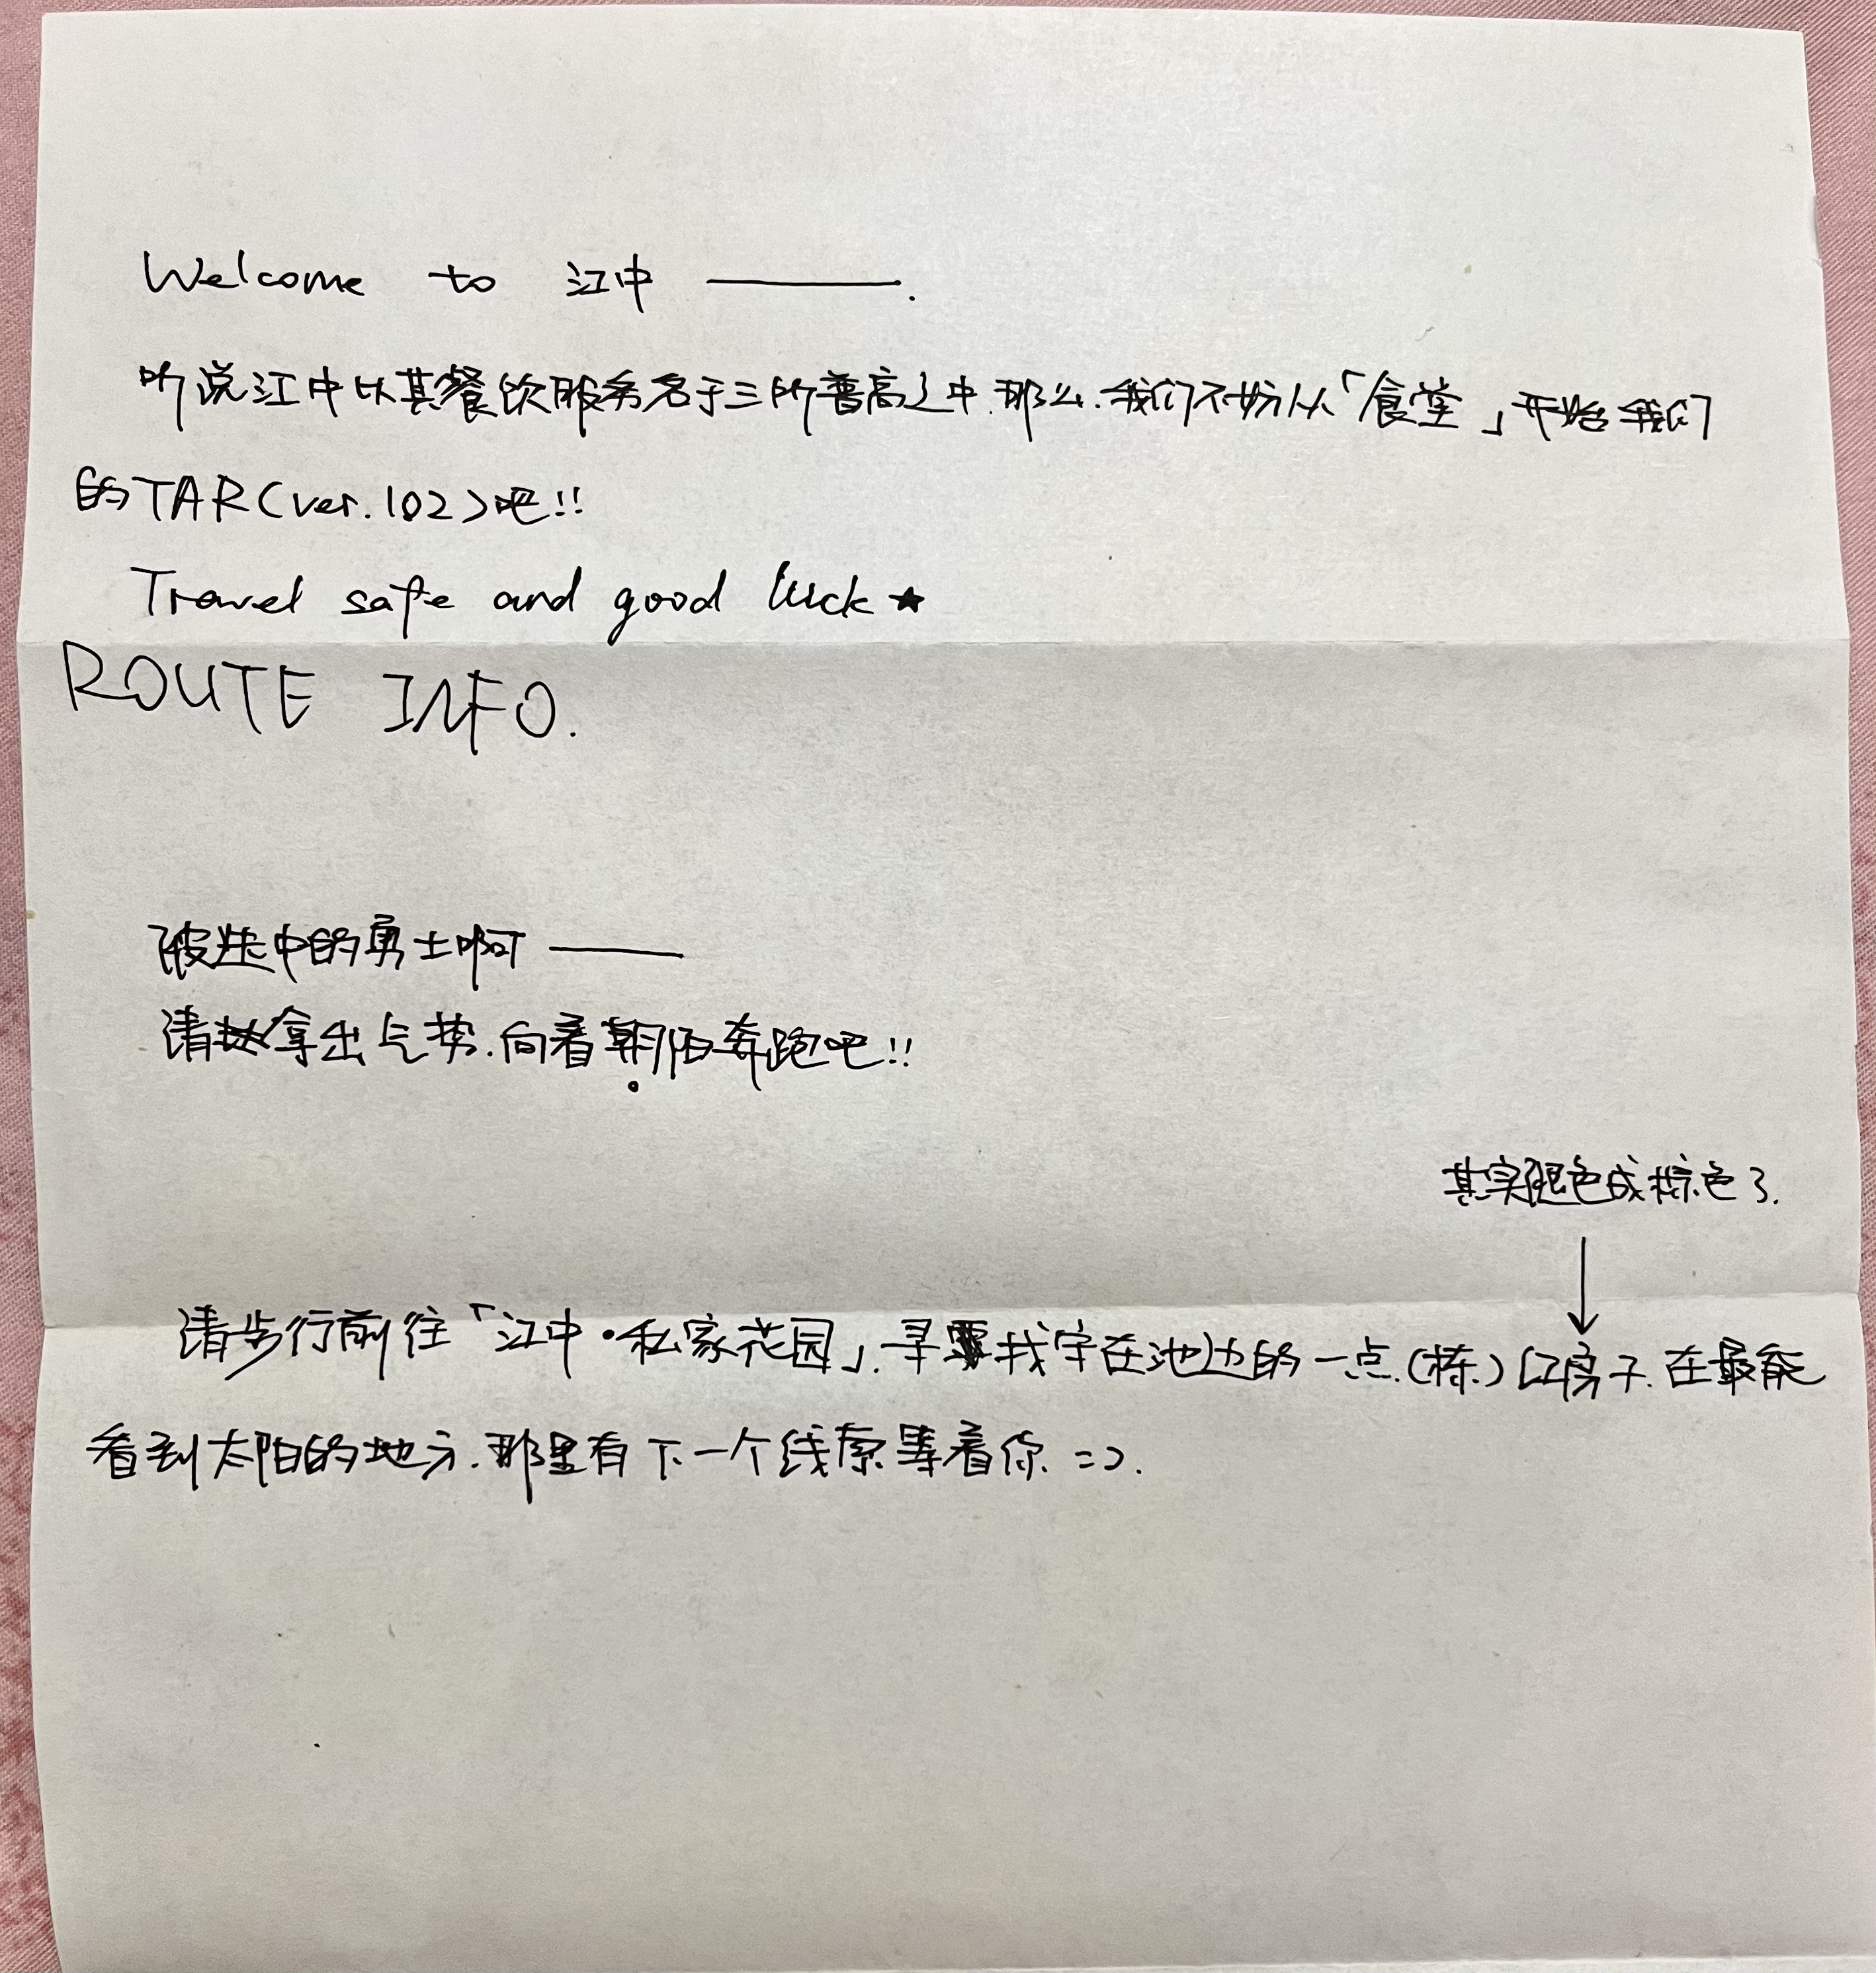 Welcome to 江中 ———.
听说江中以其餐饮服务名于三所普高之中.那么.我们不妨从「食堂」开始我们
的TAR(ver.102)吧!!
Travel safe and good luck★
ROUTE INFO.
被选中的勇士啊 ———
请拿出气势.向着朝阳奔跑吧!!
其实褪色成棕色了.
↓
请步行前往「江中·私家花园」.寻找字在池边的一点.(栋)红房子.在最能
看到太阳的地方.那里有下一个线索等着你 =).